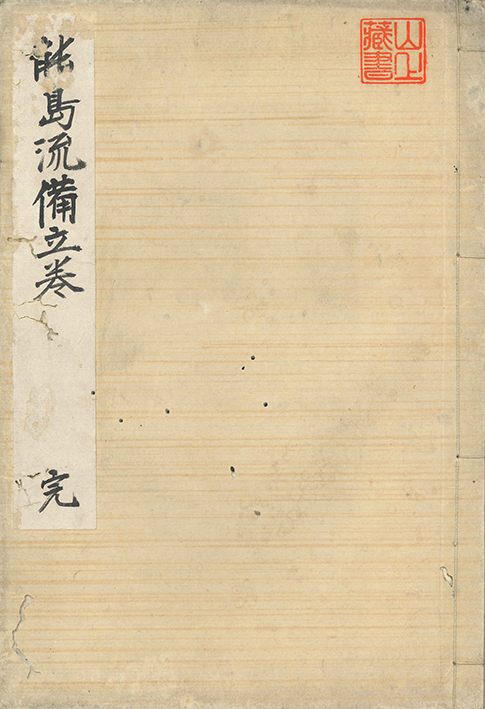 能島流備立巻
完
山上
蔵書